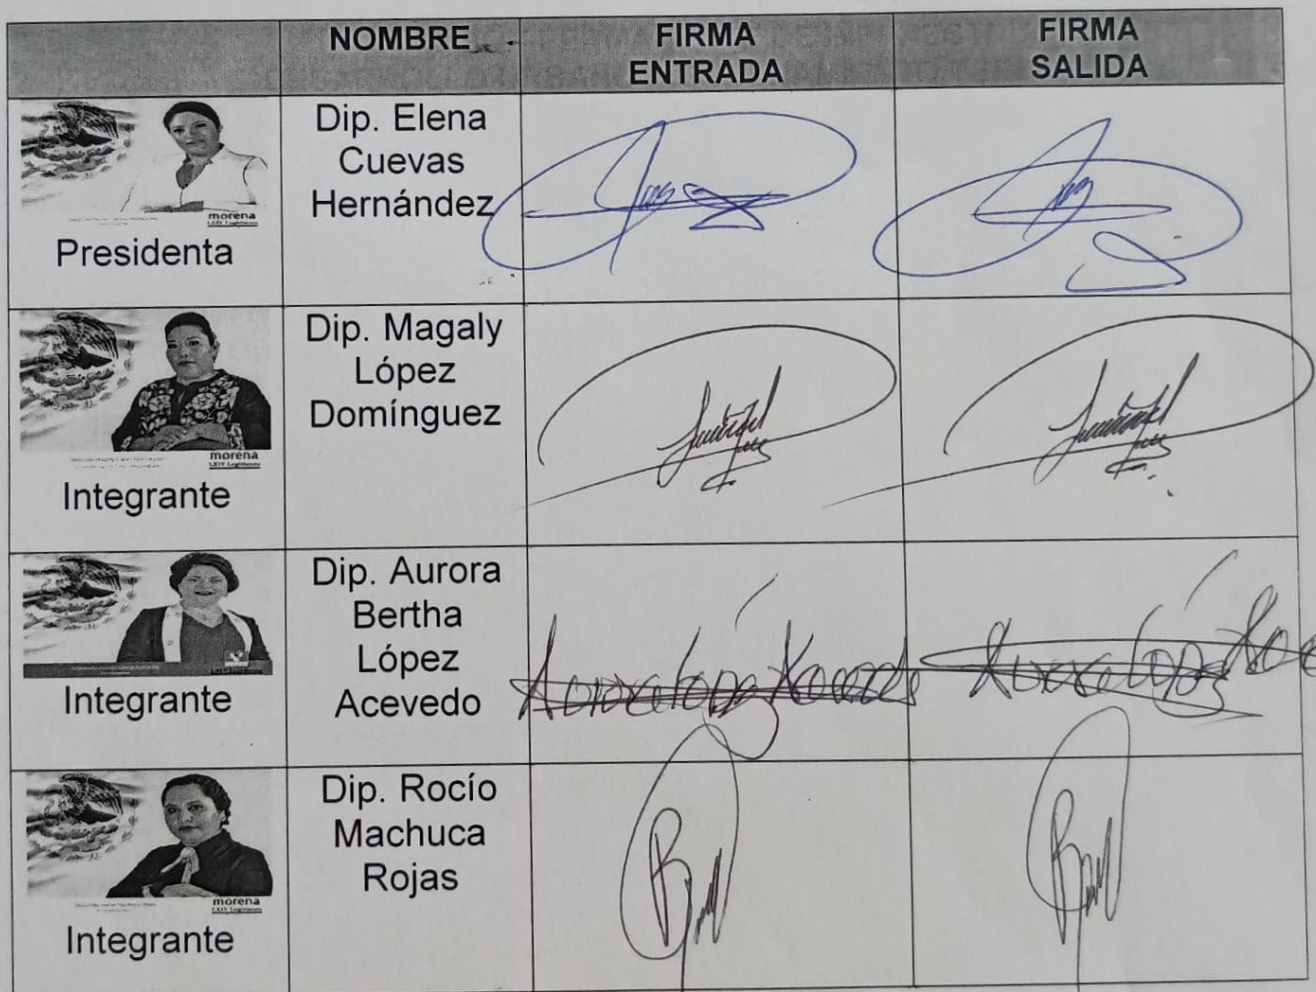 NOMBRE
FIRMA
ENTRADA
FIRMA
SALIDA
morena
LXIV Legislatura
Presidenta
Dip. Elena
Cuevas
Hernández
morena
LXIV Legislatura
Integrante
Dip. Magaly
López
Domínguez
Integrante
Dip. Aurora
Bertha
López
Acevedo
Aurora López Acevedo
Aurora López
morena
LXIV Legislatura
Integrante
Dip. Rocío
Machuca
Rojas